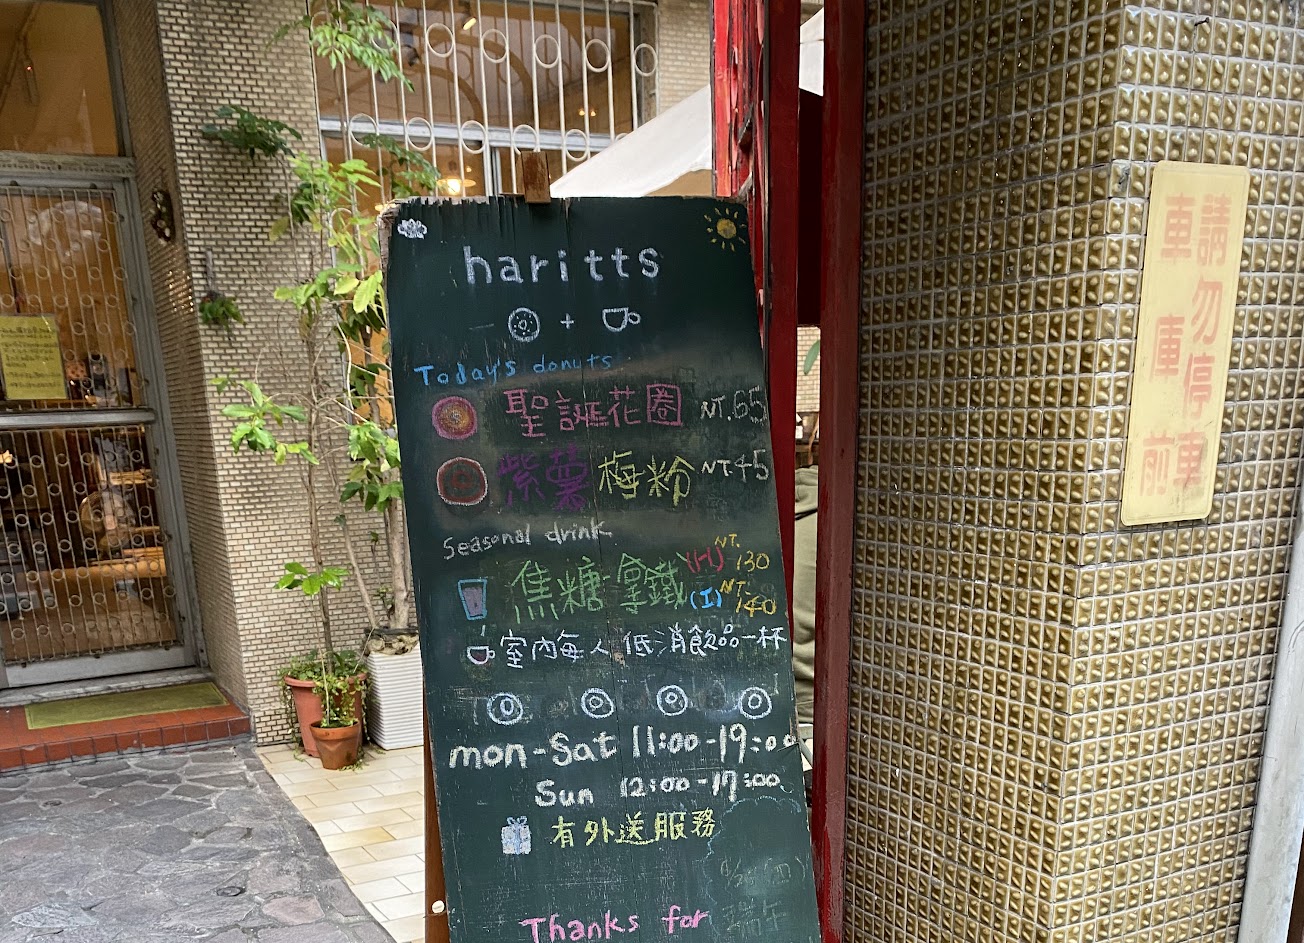 haritts
+
Today's donuts
聖誕花圈 NT.65
紫薯梅粉 NT.45
Seasonal drink
焦糖拿鐵 (H) NT. 130
(I) NT. 140
室內每人低消飲品一杯
mon-Sat 11:00-19:00
Sun 12:00-17:00
有外送服務
端午
Thanks for
車庫前
請勿停車